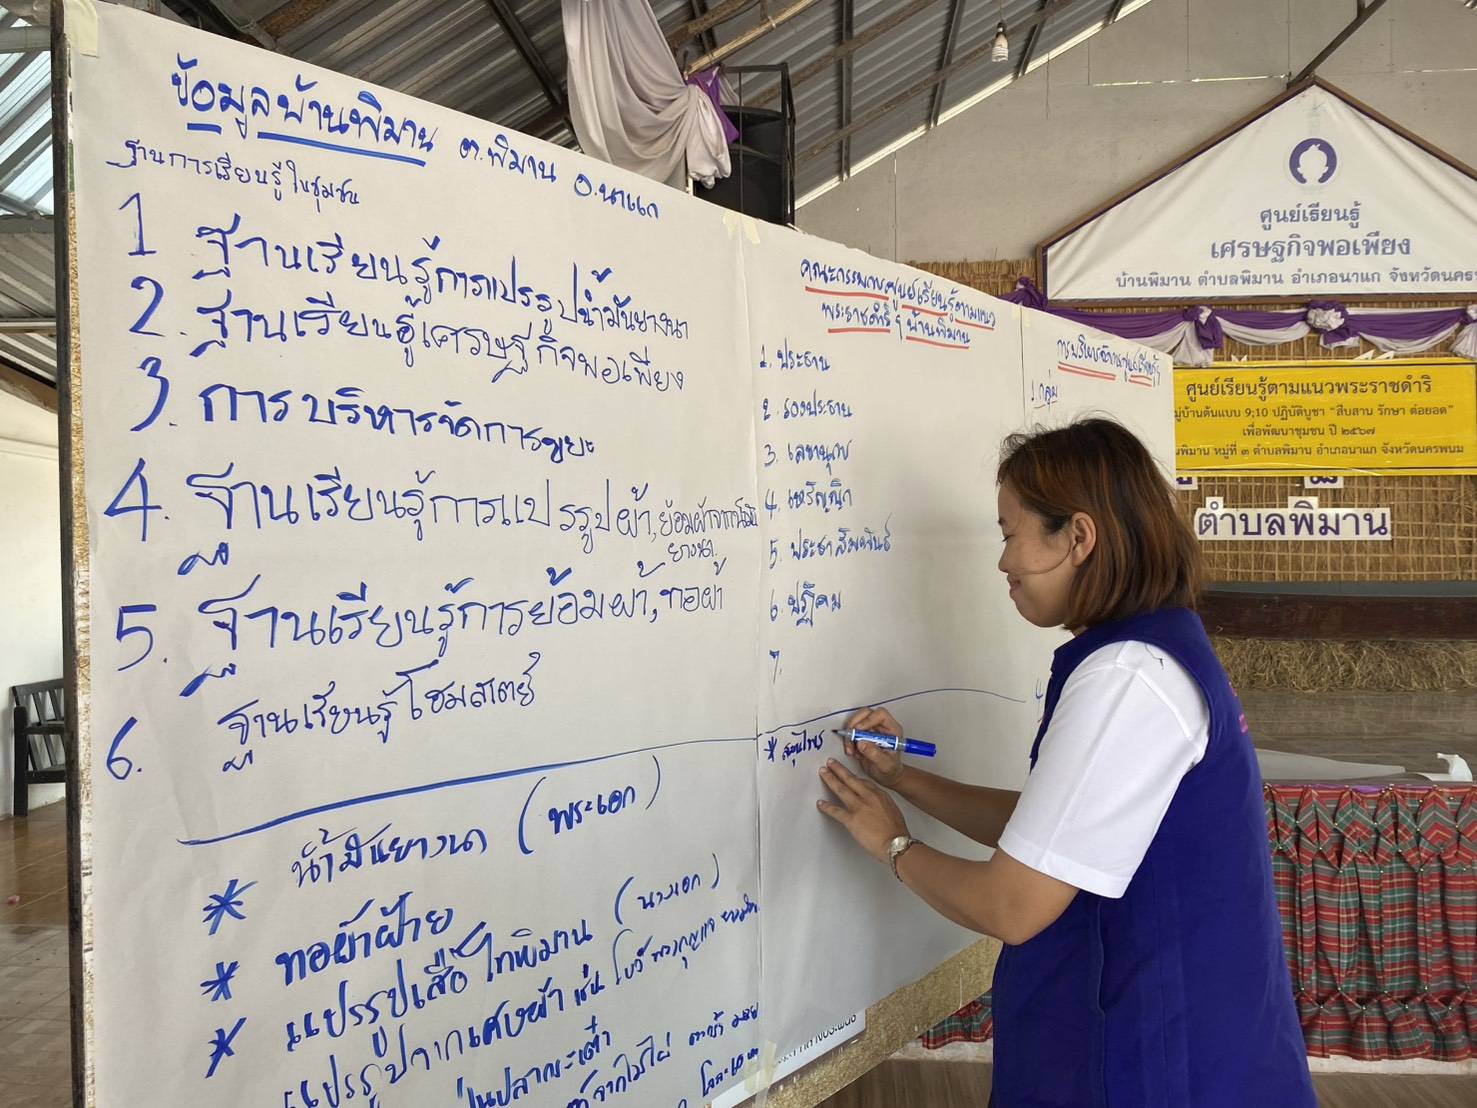 ข้อมูลบ้านพิมาน ต.พิมาน อ.นาแก
ฐานการเรียนรู้ในชุมชน
1 ฐานเรียนรู้การแปรรูปน้ำมันยางนา
2. ฐานเรียนรู้เศรษฐกิจพอเพียง
3. การบริหารจัดการขยะ
4. ฐานเรียนรู้การแปรรูปผ้า, ย้อมผ้าจาก
ยางนา.
5. ฐานเรียนรู้การย้อมผ้า, ทอผ้า
6. ฐานเรียนรู้โฮมสเตย์
* น้ำมันยางนา (พระเอก)
* ทอผ้าฝ้าย
* แปรรูปเสื่อไทพิมาน (นางเอก)
แปรรูปจากเศษผ้า เช่น โบว์ พวงกุญแจ
คณะกรรมการศูนย์เรียนรู้ตามแนว
พระราชดำริฯ บ้านพิมาน
1. ประธาน
2. รองประธาน
3. เลขานุการ
4. เหรัญญิก
5. ประชาสัมพันธ์
6. ปฏิคม
7.
* สมุนไพร
การบริหารจัดการศูนย์เรียนรู้
1. กลุ่ม
4
ศูนย์เรียนรู้
เศรษฐกิจพอเพียง
บ้านพิมาน ตำบลพิมาน อำเภอนาแก จังหวัดนครพ
ศูนย์เรียนรู้ตามแนวพระราชดำริ
หมู่บ้านต้นแบบ 9;10 ปฏิบัติบูชา "สืบสาน รักษา ต่อยอด"
เพื่อพัฒนาชุมชน ปี ๒๕๖๗
พิมาน หมู่ที่ ๓ ตำบลพิมาน อำเภอนาแก จังหวัดนครพนม
ตำบลพิมาน